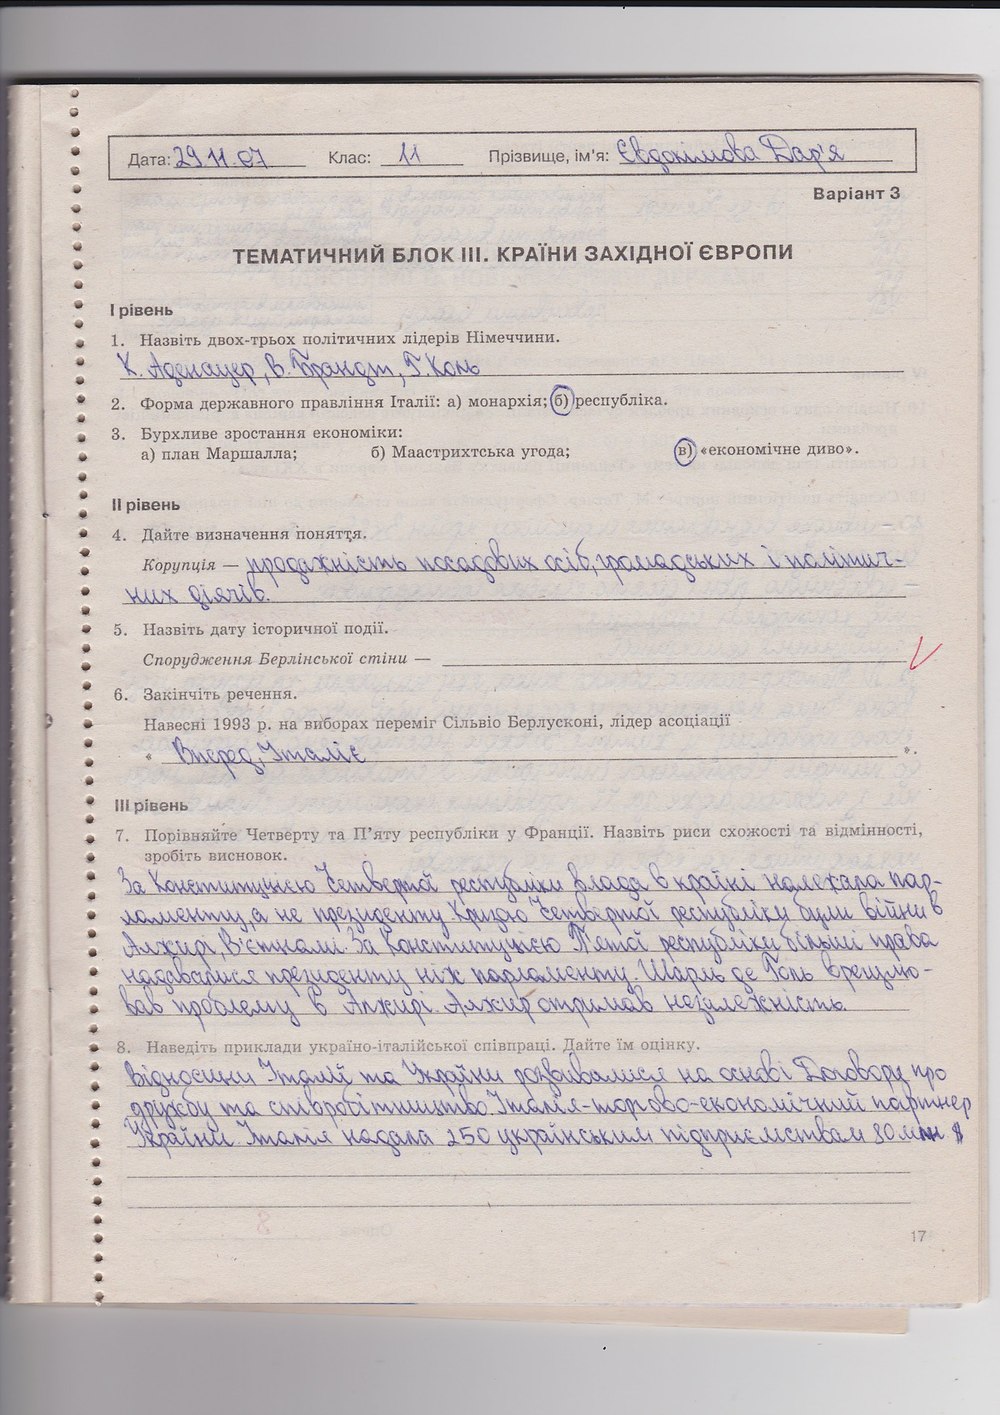 Дата: 29.11.07 Клас: 11 Прізвище, ім'я: Євдокімова Дар'я
Варіант 3
ТЕМАТИЧНИЙ БЛОК III. КРАЇНИ ЗАХІДНОЇ ЄВРОПИ
I рівень
1. Назвіть двох-трьох політичних лідерів Німеччини.
К. Аденауер, В. Брандт, Г. Коль
2. Форма державного правління Італії: а) монархія; б) республіка.
3. Бурхливе зростання економіки:
а) план Маршалла; б) Маастрихтська угода; в) «економічне диво».
II рівень
4. Дайте визначення поняття.
Корупція — продажність посадових осіб, громадських і політич-
них діячів.
5. Назвіть дату історичної події.
Спорудження Берлінської стіни —
6. Закінчіть речення.
Навесні 1993 р. на виборах переміг Сільвіо Берлусконі, лідер асоціації
« Вперед, Італіє ».
III рівень
7. Порівняйте Четверту та П'яту республіки у Франції. Назвіть риси схожості та відмінності,
зробіть висновок.
За Конституцією Четвертої республіки влада в країні належала пар-
ламенту, а не президенту. Кризою Четвертої республіки були війни в
Алжирі, В'єтнамі. За Конституцією П'ятої республіки більші права
надавалися президенту ніж парламенту. Шарль де Голь врегулю-
вав проблему в Алжирі. Алжир отримав незалежність.
8. Наведіть приклади україно-італійської співпраці. Дайте їм оцінку.
Відносини Італії та України розвивалися на основі Договору про
дружбу та співробітництво. Італія-торгово-економічний партнер
України. Італія надала 250 українським підприємствам 80 млн $
17